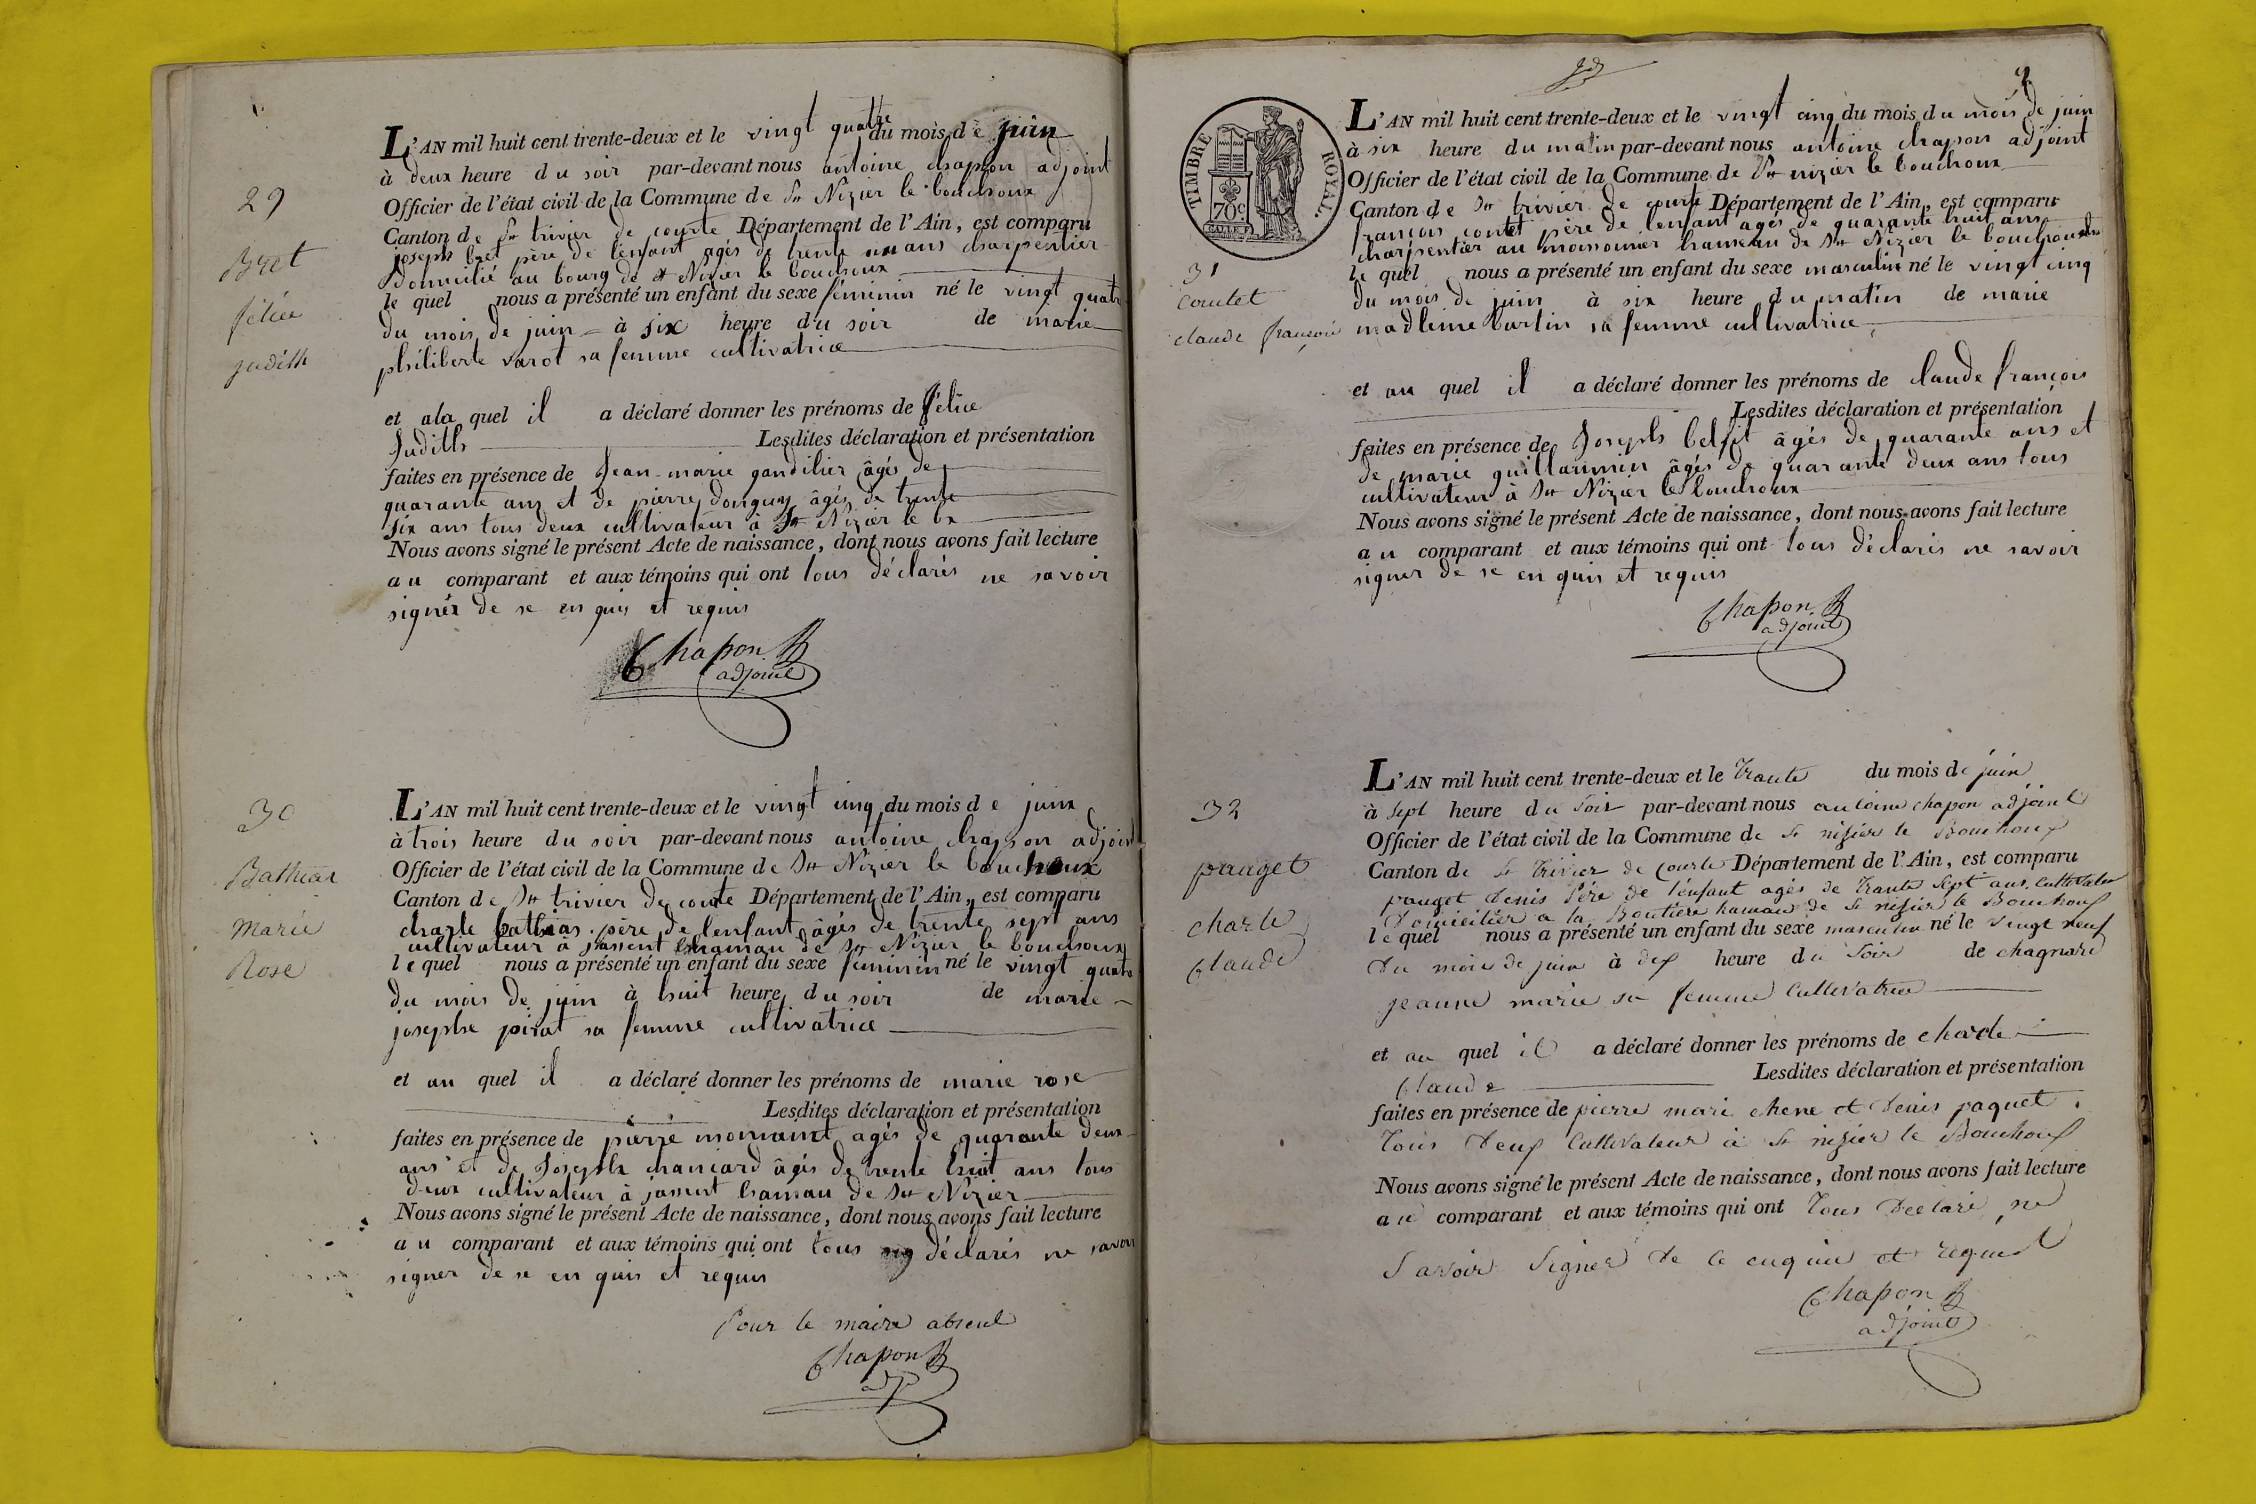 29
Bret
félice
judith
L'AN mil huit cent trente-deux et le vingt quatre du mois de juin
à deux heure du soir par-devant nous antoine chapon adjoint
Officier de l'état civil de la Commune de St Nizier le bouchoux
Canton de St trivier de courte Département de l'Ain, est comparu
joseph bret père de lenfant agés de trente un ans charpentier
domicilié au bourg de st Nizier le bouchoux
le quel nous a présenté un enfant du sexe féminin né le vingt quatre
du mois de juin à six heure du soir de marie
philiberte varot sa femme cultivatrice
et ala quel il a déclaré donner les prénoms de félice
Judith Lesdites déclaration et présentation
faites en présence de Jean-marie gandilier âgés de
quarante ans et de pierre donguy âgés de trente
six ans tous deux cultivateur à St Nizier le bx
Nous avons signé le présent Acte de naissance, dont nous avons fait lecture
au comparant et aux témoins qui ont tous déclarés ne savoir
signér de se en quis et requis
Chapon
adjoint
30
Bathias
Marie
Rose
L'AN mil huit cent trente-deux et le vingt cinq du mois de juin
à trois heure du soir par-devant nous antoine chapon adjoint
Officier de l'état civil de la Commune de St Nizier le bouchoux
Canton de St trivier de courte Département de l'Ain, est comparu
charle bathias père de lenfant âgés de trente sept ans
cultivateur à jassent hamau de St Nizier le bouchoux
le quel nous a présenté un enfant du sexe féminin né le vingt quatre
du mois de juin à huit heure du soir de marie
josephe pirat sa femme cultivatrice
et au quel il a déclaré donner les prénoms de marie rose
Lesdites déclaration et présentation
faites en présence de pierre agés de quarante deux
ans et de Joseph âgés de trente huit ans tous
deux cultivateur à jassent hamau de St Nizier
Nous avons signé le présent Acte de naissance, dont nous avons fait lecture
au comparant et aux témoins qui ont tous déclarés ne savoir
signer de se en quis et requis
Pour le maire absent
Chapon
adj
9
TIMBRE ROYAL.
70c
31
coutet
claude françois
L'AN mil huit cent trente-deux et le vingt cinq du mois du mois de juin
à six heure du matin par-devant nous antoine chapon adjoint
Officier de l'état civil de la Commune de St nizier le bouchoux
Canton de St trivier de courte Département de l'Ain, est comparu
françois contet père de lenfant agés de quarante huit ans
charpentier au moissonnier hameau de St Nizier le bouchoux
le quel nous a présenté un enfant du sexe masculin né le vingt cinq
du mois de juin à six heure du matin de marie
madleine burtin sa femme cultivatrice
et au quel il a déclaré donner les prénoms de claude françois
Lesdites déclaration et présentation
faites en présence de Joseph belfit âgés de quarante ans et
de marie guillaumin âgés de quarante deux ans tous
cultivateur à St Nizier le bouchoux
Nous avons signé le présent Acte de naissance, dont nous avons fait lecture
au comparant et aux témoins qui ont tous déclarés ne savoir
signer de se en quis et requis
Chapon
adjoint
32
pauget
charle
Claude
L'AN mil huit cent trente-deux et le trante du mois de juin
à sept heure du soir par-devant nous antoine chapon adjoint
Officier de l'état civil de la Commune de St nisier le Bouchoux
Canton de St trivier de courte Département de l'Ain, est comparu
pauget denis père de l'enfant agés de trante sept ans. Cultivateur
domicilier a la Boutiere hamau de St nisier le Bouchoux
le quel nous a présenté un enfant du sexe masculin né le vingt neuf
du mois de juin à dix heure du soir de chagnard
jeanne marie sa femme cultivatrice
et au quel il a déclaré donner les prénoms de charle
Claude Lesdites déclaration et présentation
faites en présence de pierre mari chene et denis paquet
tous deux Cultivateur à St nisier le Bouchoux
Nous avons signé le présent Acte de naissance, dont nous avons fait lecture
au comparant et aux témoins qui ont tous declaré ne
savoir signer de ce enquis et requist
Chapon
adjoint